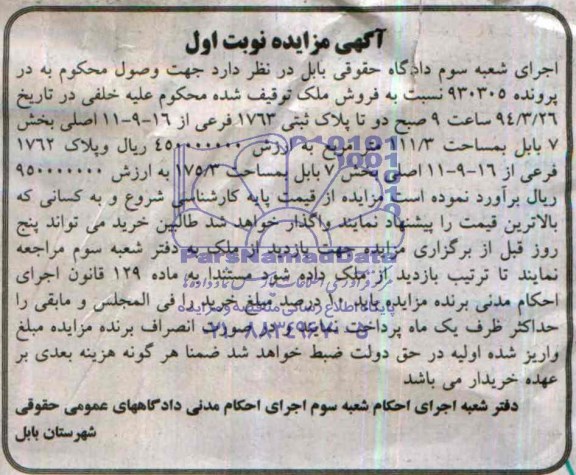 آگهی مزایده نوبت اول
اجرای شعبه سوم دادگاه حقوقی بابل در نظر دارد جهت وصول محکوم به در
پرونده ۹۳۰۳۰۵ نسبت به فروش ملک توقیف شده محکوم علیه خلفی در تاریخ
۹۴/۳/۲۶ ساعت ۹ صبح دو تا پلاک ثبتی ۱۷۶۳ فرعی از ۱۶-۹-۱۱ اصلی بخش
۷ بابل بمساحت ۱۱۱/۳ متر مربع به ارزش ۴۵۰۰۰۰۰۰۰ ریال وپلاک ۱۷۶۲
فرعی از ۱۶-۹-۱۱ اصلی بخش ۷ بابل بمساحت ۱۷۵/۳ به ارزش ۹۵۰۰۰۰۰۰۰
ریال برآورد نموده است مزایده از قیمت پایه کارشناسی شروع و به کسانی که
بالاترین قیمت را پیشنهاد نمایند واگذار خواهد شد طالبین خرید می تواند پنج
روز قبل از برگزاری مزایده جهت بازدید از ملک به دفتر شعبه سوم مراجعه
نمایند تا ترتیب بازدید از ملک داده شود مستندا به ماده ۱۲۹ قانون اجرای
احکام مدنی برنده مزایده باید ۱۰ درصد مبلغ خرید را فی المجلس و مابقی را
حداکثر ظرف یک ماه پرداخت نمایند و در صورت انصراف برنده مزایده مبلغ
واریز شده اولیه در حق دولت ضبط خواهد شد ضمنا هر گونه هزینه بعدی بر
عهده خریدار می باشد
دفتر شعبه اجرای احکام شعبه سوم اجرای احکام مدنی دادگاههای عمومی حقوقی
شهرستان بابل
ParsNamadData
پایگاه اطلاع رسانی مناقصه و مزایده
۰۲۱-۸۸۳۴۹۶۷۰-۵